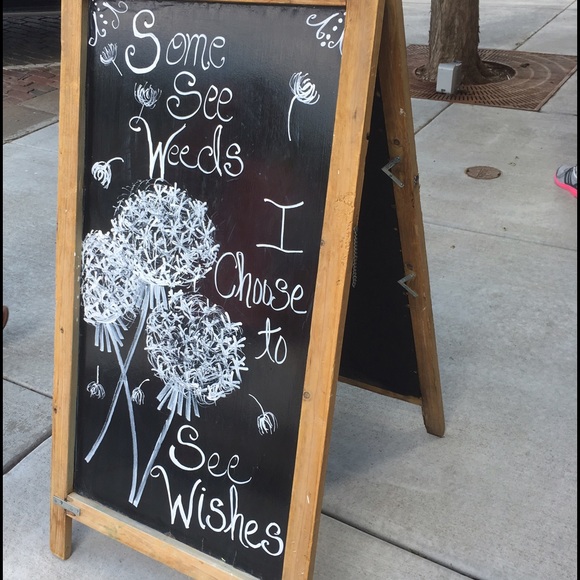 Some
See
Weeds
I
Choose
to
See
Wishes